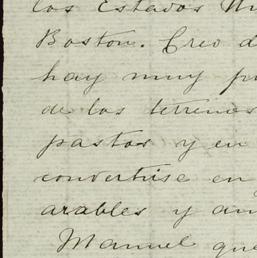 los Estados
Boston. Creo
hay muy
de los terrenos
pastos y en
convertirse en
arables y
Manuel que